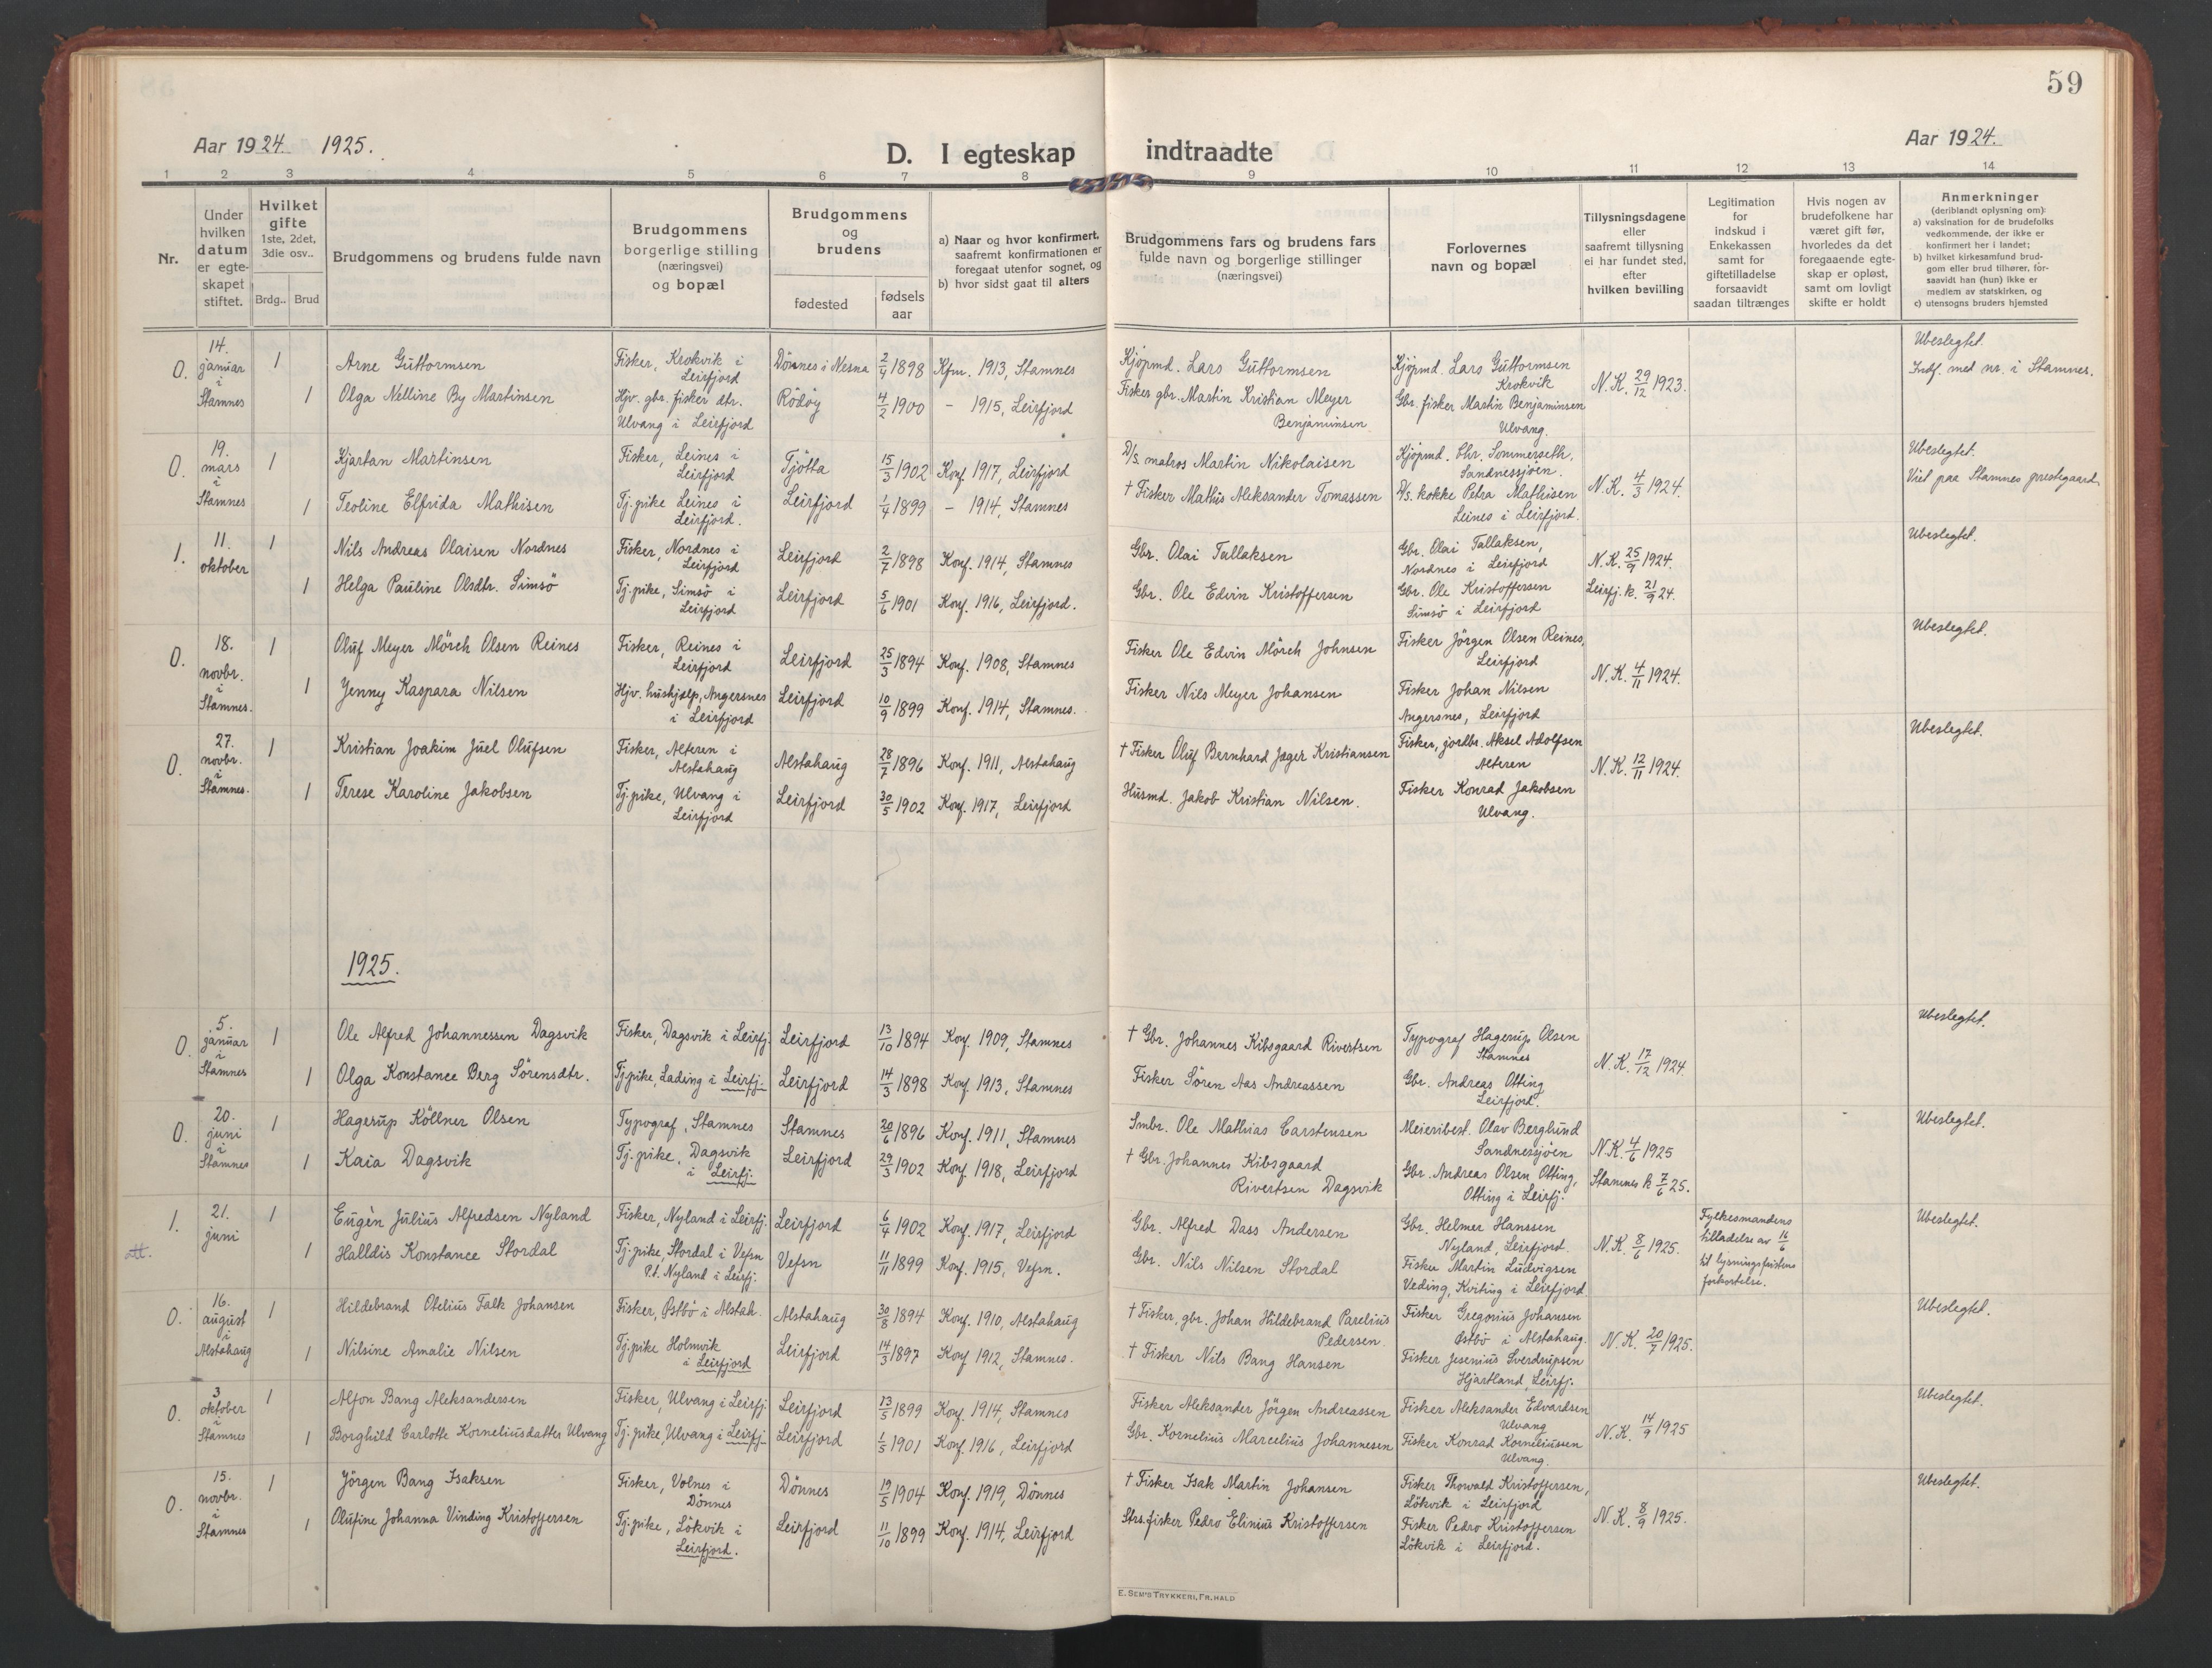 59
Aar 1924. 1925.
D. I egteskap indtraadte
Aar 1924.
1 2 3 4 5 6 7 8 9 10 11 12 13 14
Nr.
Under hvilken datum er egteskapet stiftet.
Hvilket gifte 1ste, 2det, 3die osv..
Brdg.. Brud
Brudgommens og brudens fulde navn
Brudgommens borgerlige stilling (næringsvei) og bopæl
Brudgommens og brudens
fødested
fødsels aar
a) Naar og hvor konfirmert, saafremt konfirmationen er foregaat utenfor sognet, og
b) hvor sidst gaat til alters
Brudgommens fars og brudens fars fulde navn og borgerlige stillinger (næringsvei)
Forlovernes navn og bopæl
Tillysningsdagene eller saafremt tillysning ei har fundet sted, efter hvilken bevilling
Legitimation for indskud i Enkekassen samt for giftetilladelse forsaavidt saadan tiltrænges
Hvis nogen av brudefolkene har været gift før, hvorledes da det foregaaende egteskap er opløst, samt om lovligt skifte er holdt
Anmerkninger
(deriblandt oplysning om):
a) vaksination for de brudefolks vedkommende, der ikke er konfirmert her i landet;
b) hvilket kirkesamfund brudgom eller brud tilhører, forsaavidt han (hun) ikke er medlem av statskirken, og
c) utensogns bruders hjemsted
0. 14. januar i Stamnes 1 Arne Guttormsen Fisker, Krokvik i Leirfjord Dönnes i Nesna 2/4 1898 Kfm. 1913, Stamnes Kjöpmd. Lars Guttormsen Kjöpmd. Lars Guttormsen Krokvik N.K. 29/12 1923. Ubeslegtet. Indf. med nr. i Stamnes.
1 Olga Nelline By Martinsen Hjv. gbr. fisker dtr. Ulvang i Leirfjord Rödöy 4/2 1900 - 1915, Leirfjord Fisker gbr. Martin Kristian Meyer Benjaminsen Gbr. fisker Martin Benjaminsen Ulvang.
0. 19. mars i Stamnes 1 Kjartan Martinsen Fisker, Leines i Leirfjord Tjötta 15/3 1902 Konf. 1917, Leirfjord D/s matros Martin Nikolaisen Kjöpmd. Chr. Sommerseth, Sandnessjöen. N.K. 4/3 1924. Ubeslegtet. Viet paa Stamnes prestegaard.
1 Teoline Elfrida Mathisen Tj. pike Leines i Leirfjord. Leirfjord 1/4 1899 - 1914, Stamnes † Fisker Mathis Aleksander Tomassen D/s. kokke Petra Mathisen Leines i Leirfjord.
1. 11. oktober 1 Nils Andreas Olaisen Nordnes Fisker, Nordnes i Leirfjord Leirfjord 2/7 1898 Konf. 1914, Stamnes Gbr. Olai Tallaksen Gbr. Olai Tallaksen, Nordnes i Leirfjord N.K. 25/9 1924. Ubeslegtet.
1 Helga Pauline Olsdtr. Simsö Tj. pike, Simsö i Leirfjord Leirfjord 5/6 1901 Konf. 1916, Leirfjord. Gbr. Ole Edvin Kristoffersen Gbr. Ole Kristoffersen Simsö i Leirfjord Leirfj. k. 21/9 24.
0. 18. novbr. i Stamnes. 1 Oluf Meyer Mörch Olsen Reines Fisker, Reines i Leirfjord Leirfjord 25/3 1894 Konf. 1908, Stamnes Fisker Ole Edvin Mörch Johnsen Fisker Jörgen Olsen Reines, Leirfjord N.K. 4/11 1924. Ubeslegtet.
1 Jenny Kaspara Nilsen Hjv. hushjælp, Angersnes i Leirfjord Leirfjord 10/9 1899 Konf. 1914, Stamnes. Fisker Nils Meyer Johansen Fisker Johan Nilsen Angersnes, Leirfjord
0. 27. novbr. i Stamnes. 1 Kristian Joakim Juel Olufsen Fisker, Alteren i Alstahaug Alstahaug 28/7 1896 Konf. 1911, Alstahaug † Fisker Oluf Bernhard Jæger Kristiansen Fisker, jordbr. Aksel Adolfsen Alteren N.K. 12/11 1924. Ubeslegtet.
1 Terese Karoline Jakobsen Tj. pike, Ulvang i Leirfjord Leirfjord 30/5 1902 Konf. 1917, Leirfjord Husmd. Jakob Kristian Nilsen. Fisker Konrad Jakobsen Ulvang.
1925.
0. 5. januar i Stamnes 1 Ole Alfred Johannessen Dagsvik Fisker, Dagsvik i Leirfj. Leirfjord 13/10 1894 Konf. 1909, Stamnes † Gbr. Johannes Kibsgaard Rivertsen Typograf Hagerup Olsen Stamnes N.K. 17/12 1924. Ubeslegtet.
1 Olga Konstance Berg Sörensdtr. Tj. pike, Lading i Leirfj. Leirfjord 14/3 1898 Konf. 1913, Stamnes Fisker Sören Aas Andreassen Gbr. Andreas Otting Leirfjord.
0. 20. juni i Stamnes 1 Hagerup Köllner Olsen Typograf, Stamnes Stamnes 20/6 1896 Konf. 1911, Stamnes Smbr. Ole Mathias Carstensen Meieribest. Olav Berglund Sandnessjöen N.K. 4/6 1925 Ubeslegtet.
1 Kaia Dagsvik Tj. pike, Dagsvik i Leirfj. Leirfjord 29/3 1902 Konf. 1918, Leirfjord † Gbr. Johannes Kibsgaard Rivertsen Dagsvik Gbr. Andreas Olsen Otting, Otting i Leirfj. Stamnes k 7/6 25.
1. 21. juni 1 Eugèn Julius Alfredsen Nyland Fisker, Nyland i Leirfj. Leirfjord 6/4 1902 Konf. 1917, Leirfjord Gbr. Alfred Dass Andersen Gbr. Helmer Hanssen Nyland, Leirfjord. N.K. 8/6 1925. Fylkesmandens tilladelse av 16/6 til lysningsfristens forkortelse. Ubeslegtet.
1 Halldis Konstance Stordal Tj. pike, Stordal i Vefsn P.t. Nyland i Leirfj. Vefsn 11/11 1899 Konf. 1915, Vefsn. Gbr. Nils Nilsen Stordal Fisker Martin Ludvigsen Veding, Kviting i Leirfjord
0. 16. august i Alstahaug 1 Hildebrand Otelius Falk Johansen Fisker, Östbö i Alstah. Alstahaug 30/8 1894 Konf. 1910, Alstahaug † Fisker, gbr. Johan Hildebrand Parelius Pedersen Fisker Gregonius Johansen Östbö i Alstahaug. N.K. 20/7 1925. Ubeslegtet.
1 Nilsine Amalie Nilsen Tj. pike Holmvik i Leirfjord Leirfjord 14/3 1897 Konf 1912, Stamnes. † Fisker Nils Bang Hansen Fisker Jesenius Sverdrupsen Hjartland, Leirfj.
0. 3 oktober i Stamnes 1 Alfon Bang Aleksandersen Fisker, Ulvang i Leirfj Leirfjord 13/5 1899 Konf. 1914, Stamnes Fisker Aleksander Jörgen Andreassen Fisker Aleksander Edvardsen Ulvang N.K. 14/9 1925 Ubeslegtet.
1 Borghild Carlotte Korneliusdatter Ulvang Tj. pike, Ulvang i Leirfj. Leirfjord 1/5 1901 Konf. 1916, Leirfjord Gbr. Kornelius Marcelius Johannesen Fisker Konrad Korneliussen Ulvang.
0. 15. novbr. i Stamnes 1 Jörgen Bang Isaksen Fisker, Volnes i Dönnes Dönnes 19/5 1904 Konf. 1919, Dönnes † Fisker Isak Martin Johansen Fisker Thorvald Kristoffersen, Lökvik i Leirfjord N.K. 8/9 1925. Ubeslegtet.
1 Olufine Johanna Vinding Kristoffersen Tj. pike, Lökvik i Leirfjord. Leirfjord 11/10 1899 Konf. 1914, Leirfjord Strs. fisker Pedro Elinius Kristoffersen Fisker Pedro Kristoffersen Lökvik i Leirfjord.
E. SEM'S TRYKKERI, FR.HALD